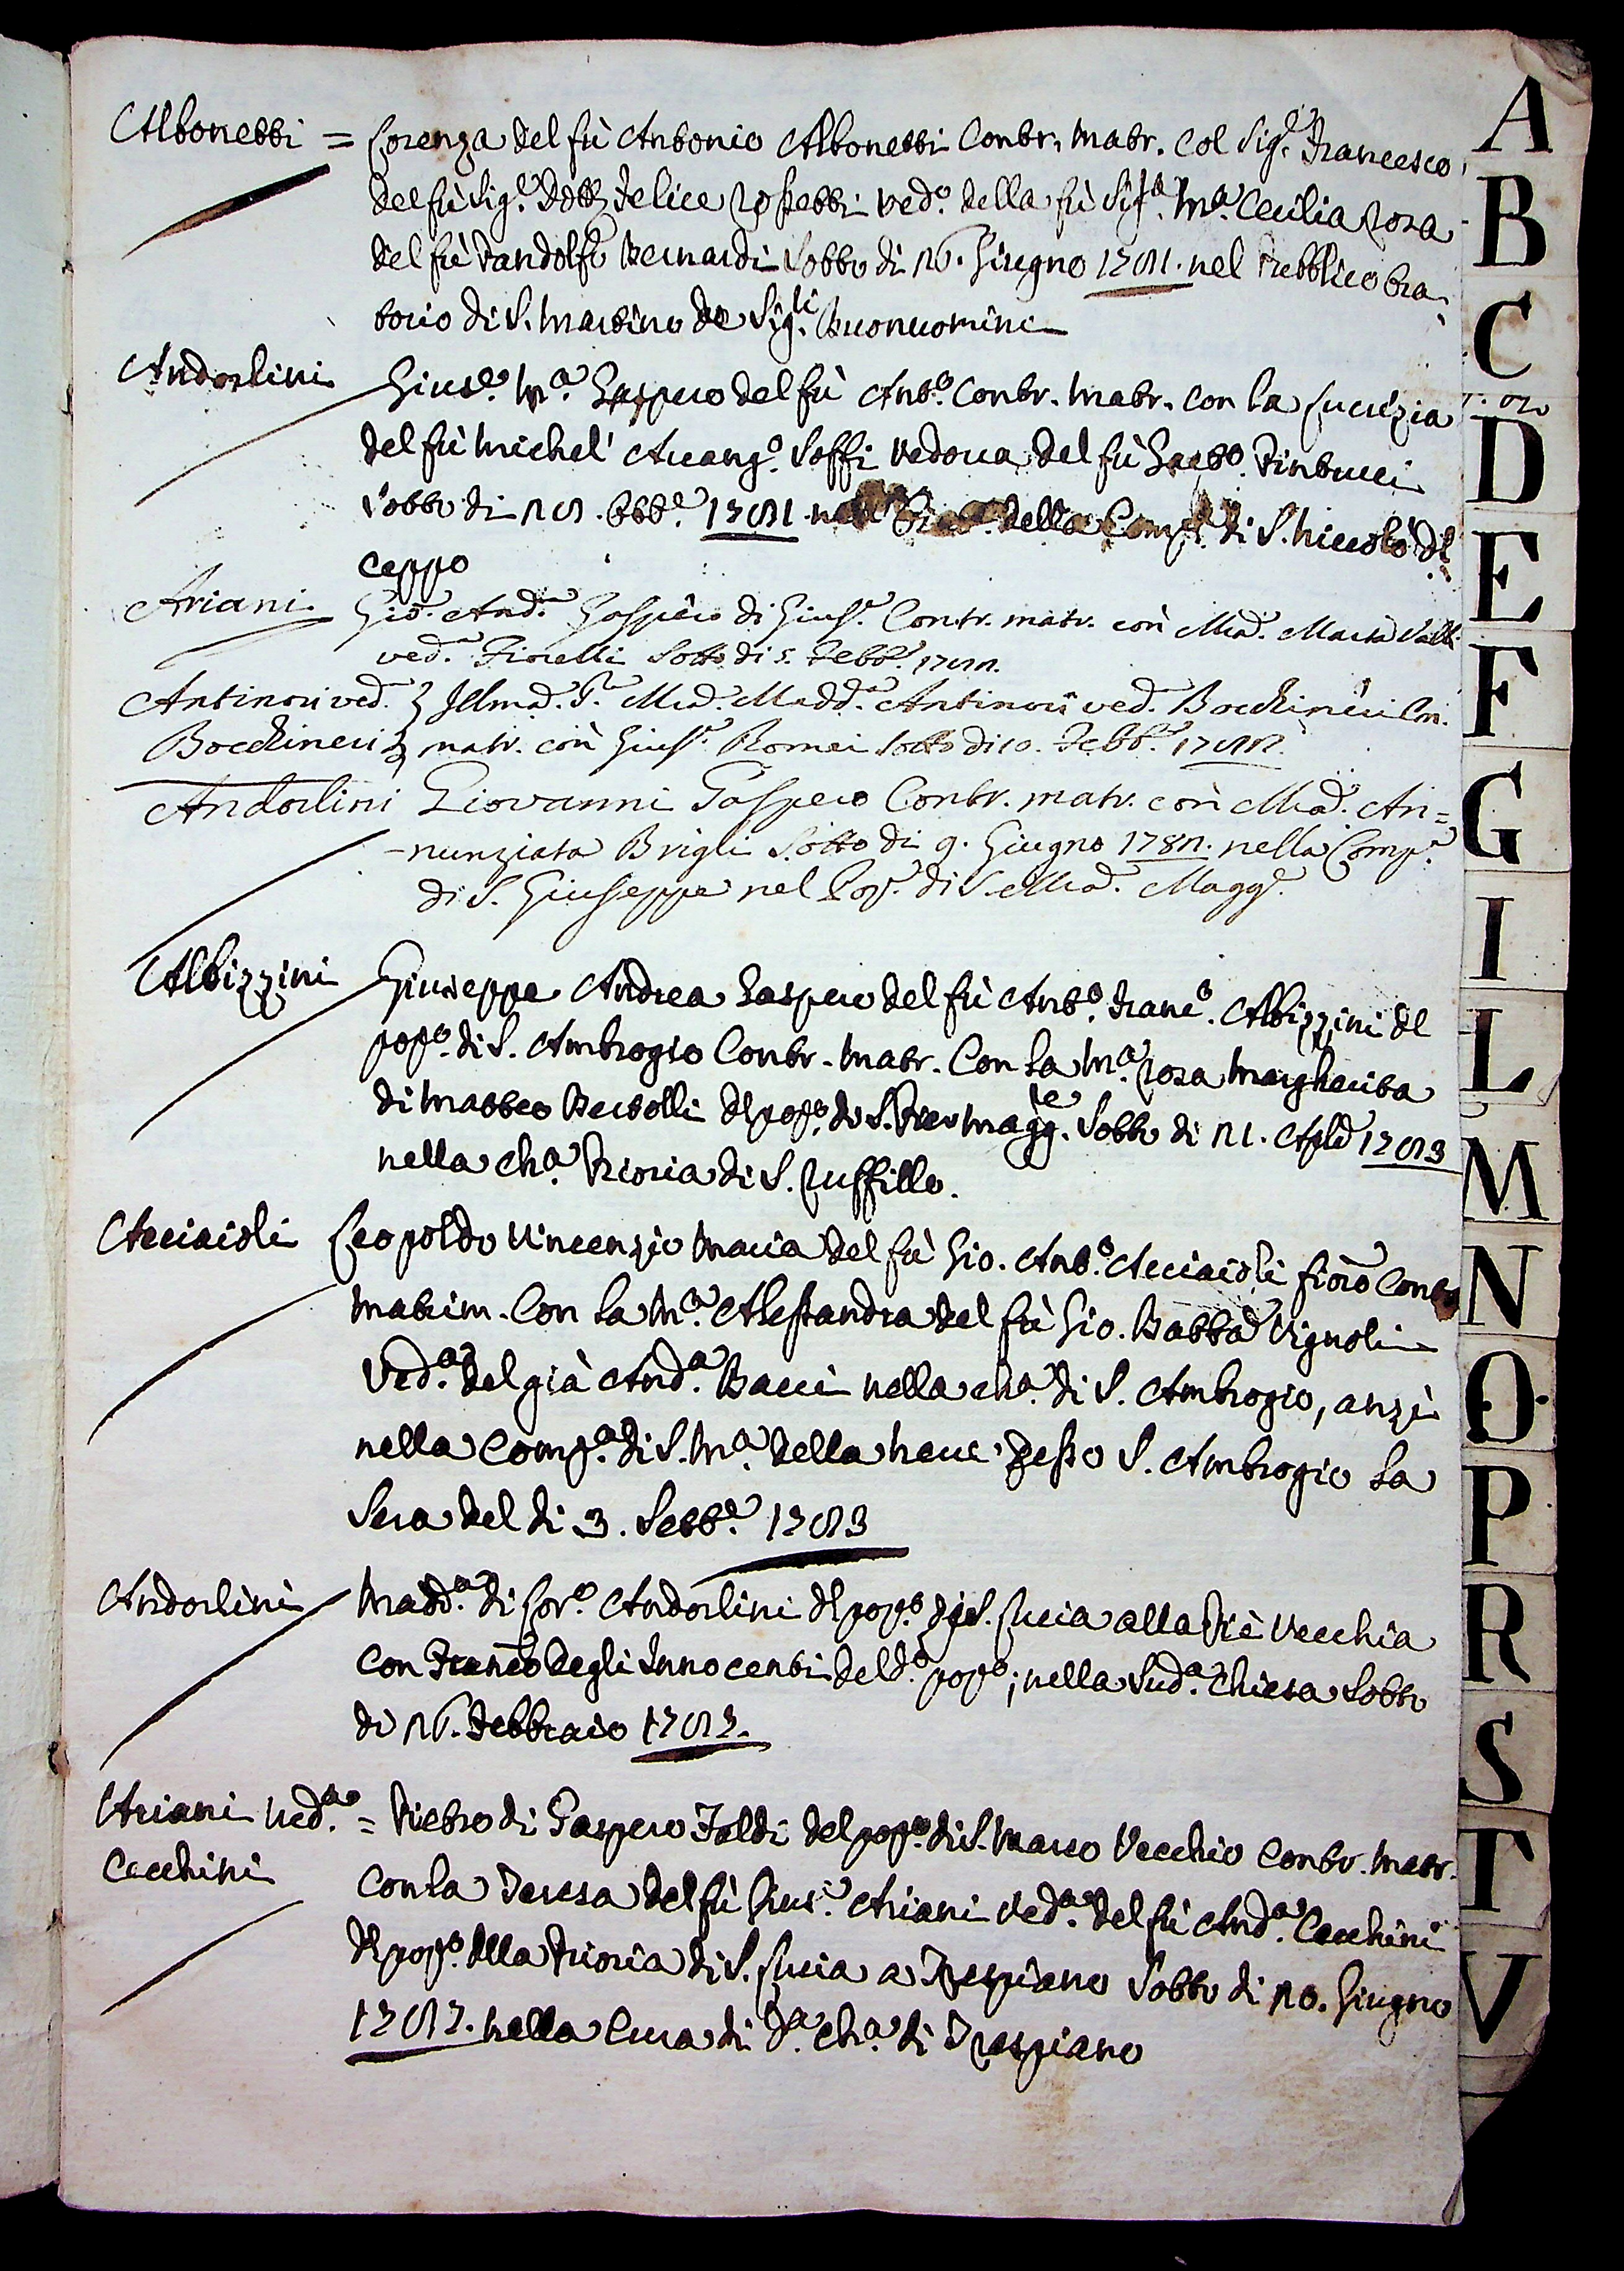 Albonetti = Lorenza del fù Antonio Albonetti Contr. Matr. Col Sig.e Francesco
del fù Sig.e Dott. Felice Rossetti ved.o della fù Sig.a M.a Cecilia Rosa
del fù Pandolfo Bernardi Sotto di 26. Giugno 1781. nel Pubblico Ora-
torio di S. Martino de Sig.li Buonuomini
Andorlini Gius.e M.a Gaspero del fù Ant.o Contr. Matr. con la Lucrezia
del fù Michel' Arcang.o Soffi Vedova del fù Gaet.o Pintucci
Sotto di 28. Ott.e 1781 nell' della Comp.a di S. Niccolò dl
Ceppo
Ariani Gio. And.a Gasspero di Gius.e Contr. matr. con Mad.a Maria Valli
ved.a Fiorelli Sotto di 5. Febb.o 1782.
Antinori ved.a } Illma. S.ra Mad. Madd.a Antinori ved.a Bocchineri Con.
Bocchineri } matr. con Gius.e Romei Sotto di 10. Febb.o 1782.
Andorlini Giovanni Gaspero Contr. matr. con Mad.a An=
-nunziata Brigli Sotto di 9. Giugno 1782. nella Comp.a
di S. Giuseppe nel Pop.o di S. Mad.a Magg.e
Albizzini Giuseppe Andrea Gaspero del fù Ant.o Franc.o Albizzini dl
pop.o di S. Ambrogio Contr. Matr. Con la M.a Rosa Margherita
di Matteo Bertolli dl pop.o di S. Pier Magg.re Sotto di 21. Aple 1783
nella Ch.a Prioria di S. Ruffillo.
Acciaioli Leopoldo Vincenzio Maria del fù Gio. Ant.o Acciaioli fiorno Contr
Matrim. Con la M.a Alessandra del fù Gio. Batta Vignoli
Ved.a del già And.a Bacci nella ch.a di S. Ambrogio, anzi
nella Comp.a di S. M.a della Neve presso S. Ambrogio la
Sera del di 3. Sett.e 1783
Andorlini Madd.a di Lor.o Andorlini dl pop.o di S. Lucia alla Piè Vecchia
Con Franco degli Innocenti del d.o pop.o; nella Sud.a Chiesa Sotto
di 26. Febbraio 1787.
Ariani Ved.a = Pietro di Gaspero Faldi del pop.o di S. Marco Vecchio Contr. Matr.
Cecchini Con la Teresa del fù Gius.e Ariani Ved.a del fù And.a Cecchini
dl pop.o dlla Prioria di S. Lucia a Trespiano Sotto di 20. Giugno
1787. nella Cura di d.a ch.a di Trespiano
A
B
C
D
E
F
G
I
L
M
N
O
P
R
S
T
V